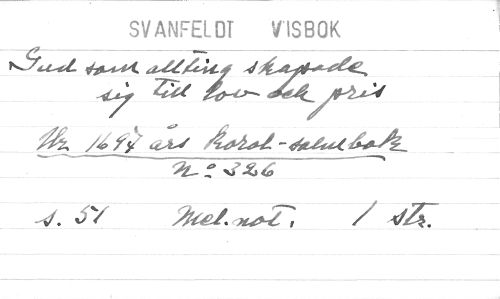 SVANFELDT VISBOK
Gud som allting skapade
sig till lov och pris
Ur 1697 års koral-salmbok
No 326
s. 51 Mel.not. 1 str.